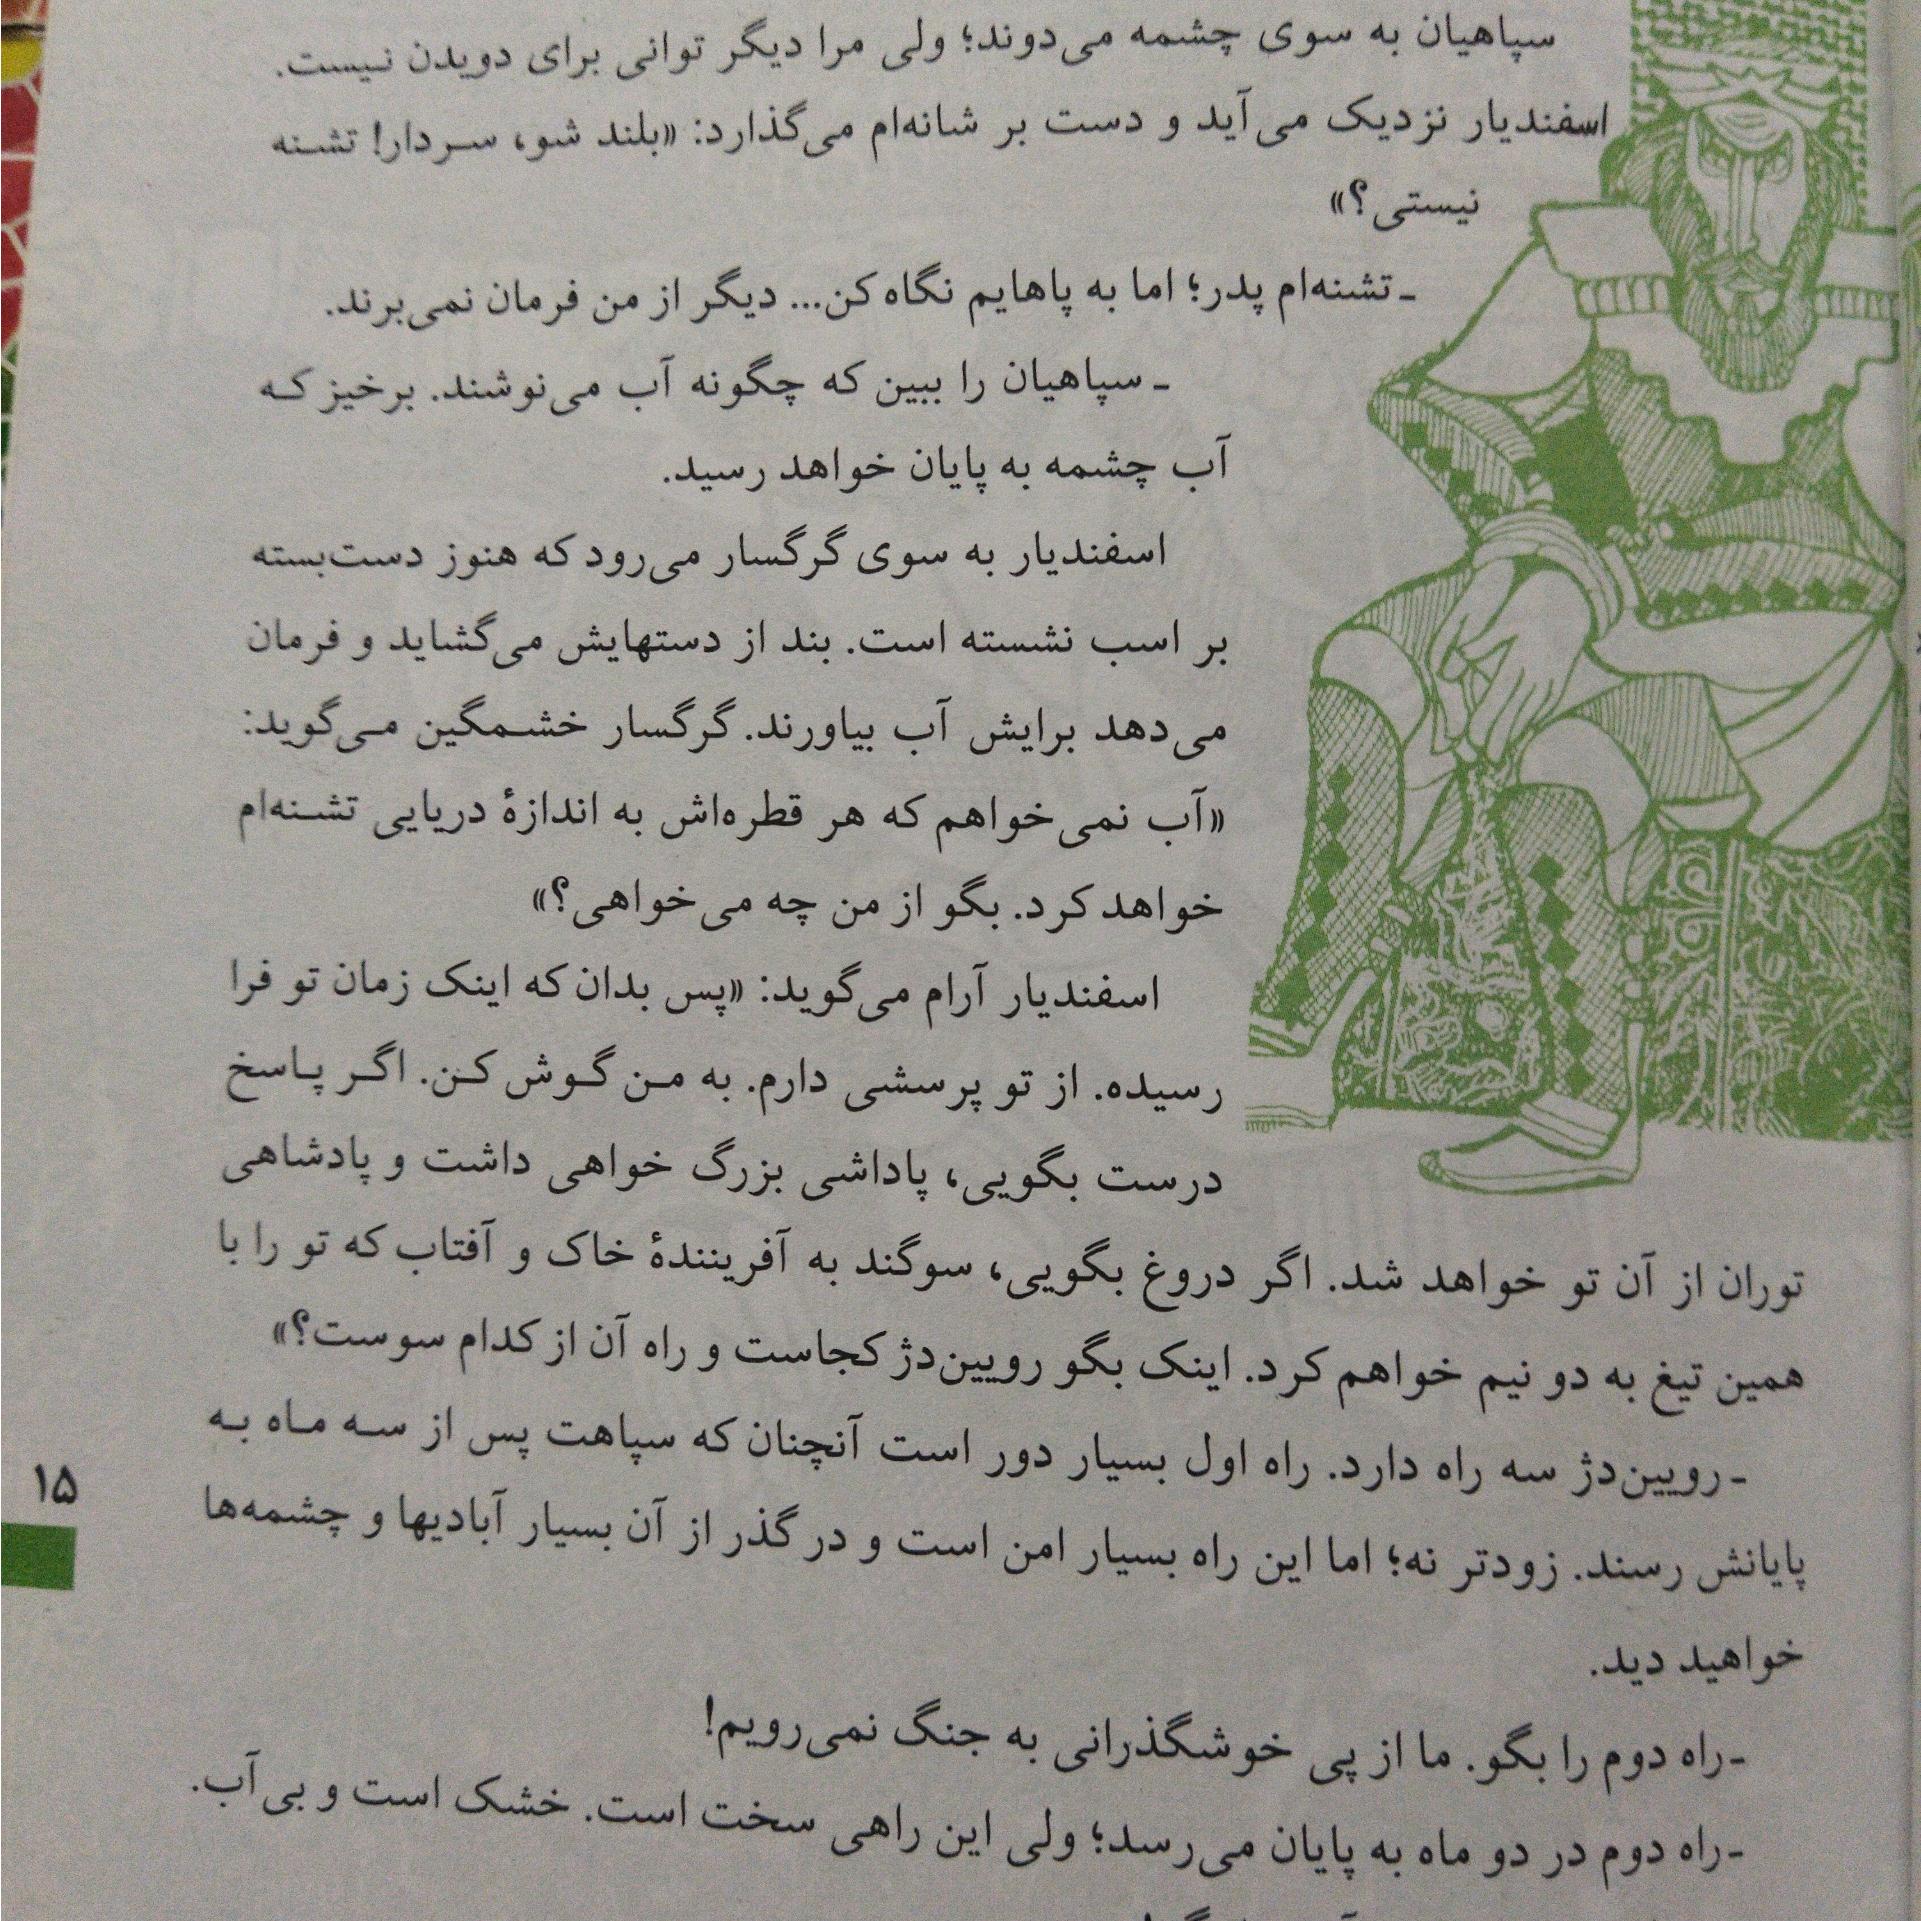 سپاهیان به سوی چشمه می‌دوند؛ ولی مرا دیگر توانی برای دویدن نیست.
اسفندیار نزدیک می‌آید و دست بر شانه‌ام می‌گذارد: «بلند شو، سردار! تشنه
نیستی؟»
ـ تشنه‌ام پدر؛ اما به پاهایم نگاه کن... دیگر از من فرمان نمی‌برند.
ـ سپاهیان را ببین که چگونه آب می‌نوشند. برخیز که
آب چشمه به پایان خواهد رسید.
اسفندیار به سوی گرگسار می‌رود که هنوز دست‌بسته
بر اسب نشسته است. بند از دستهایش می‌گشاید و فرمان
می‌دهد برایش آب بیاورند. گرگسار خشمگین می‌گوید:
«آب نمی‌خواهم که هر قطره‌اش به اندازهٔ دریایی تشنه‌ام
خواهد کرد. بگو از من چه می‌خواهی؟»
اسفندیار آرام می‌گوید: «پس بدان که اینک زمان تو فرا
رسیده. از تو پرسشی دارم. به من گوش کن. اگر پاسخ
درست بگویی، پاداشی بزرگ خواهی داشت و پادشاهی
توران از آن تو خواهد شد. اگر دروغ بگویی، سوگند به آفرینندهٔ خاک و آفتاب که تو را با
همین تیغ به دو نیم خواهم کرد. اینک بگو رویین‌دژ کجاست و راه آن از کدام سوست؟»
ـ رویین‌دژ سه راه دارد. راه اول بسیار دور است آنچنان که سپاهت پس از سه ماه به
پایانش رسند. زودتر نه؛ اما این راه بسیار امن است و در گذر از آن بسیار آبادیها و چشمه‌ها
خواهید دید.
ـ راه دوم را بگو. ما از پی خوشگذرانی به جنگ نمی‌رویم!
ـ راه دوم در دو ماه به پایان می‌رسد؛ ولی این راهی سخت است. خشک است و بی‌آب.
۱۵